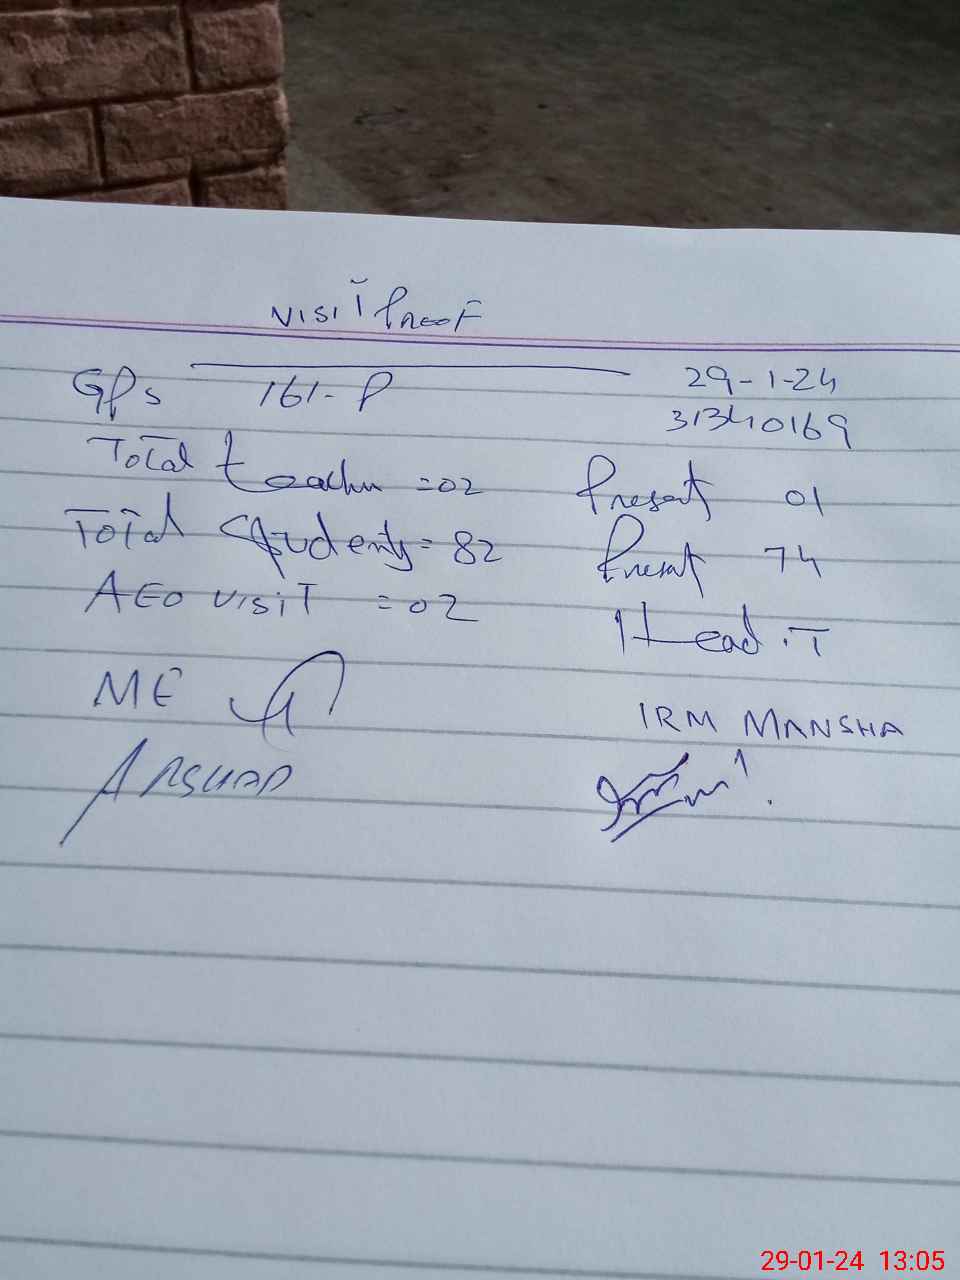 VISIT Proof
GPs 161-P 29-1-24
31340169
Total teacher =02 Present 01
Total Students = 82 Present 74
AEO visiT =02 Head.T
ME IRM MANSHA
ARSHAD
29-01-24 13:05